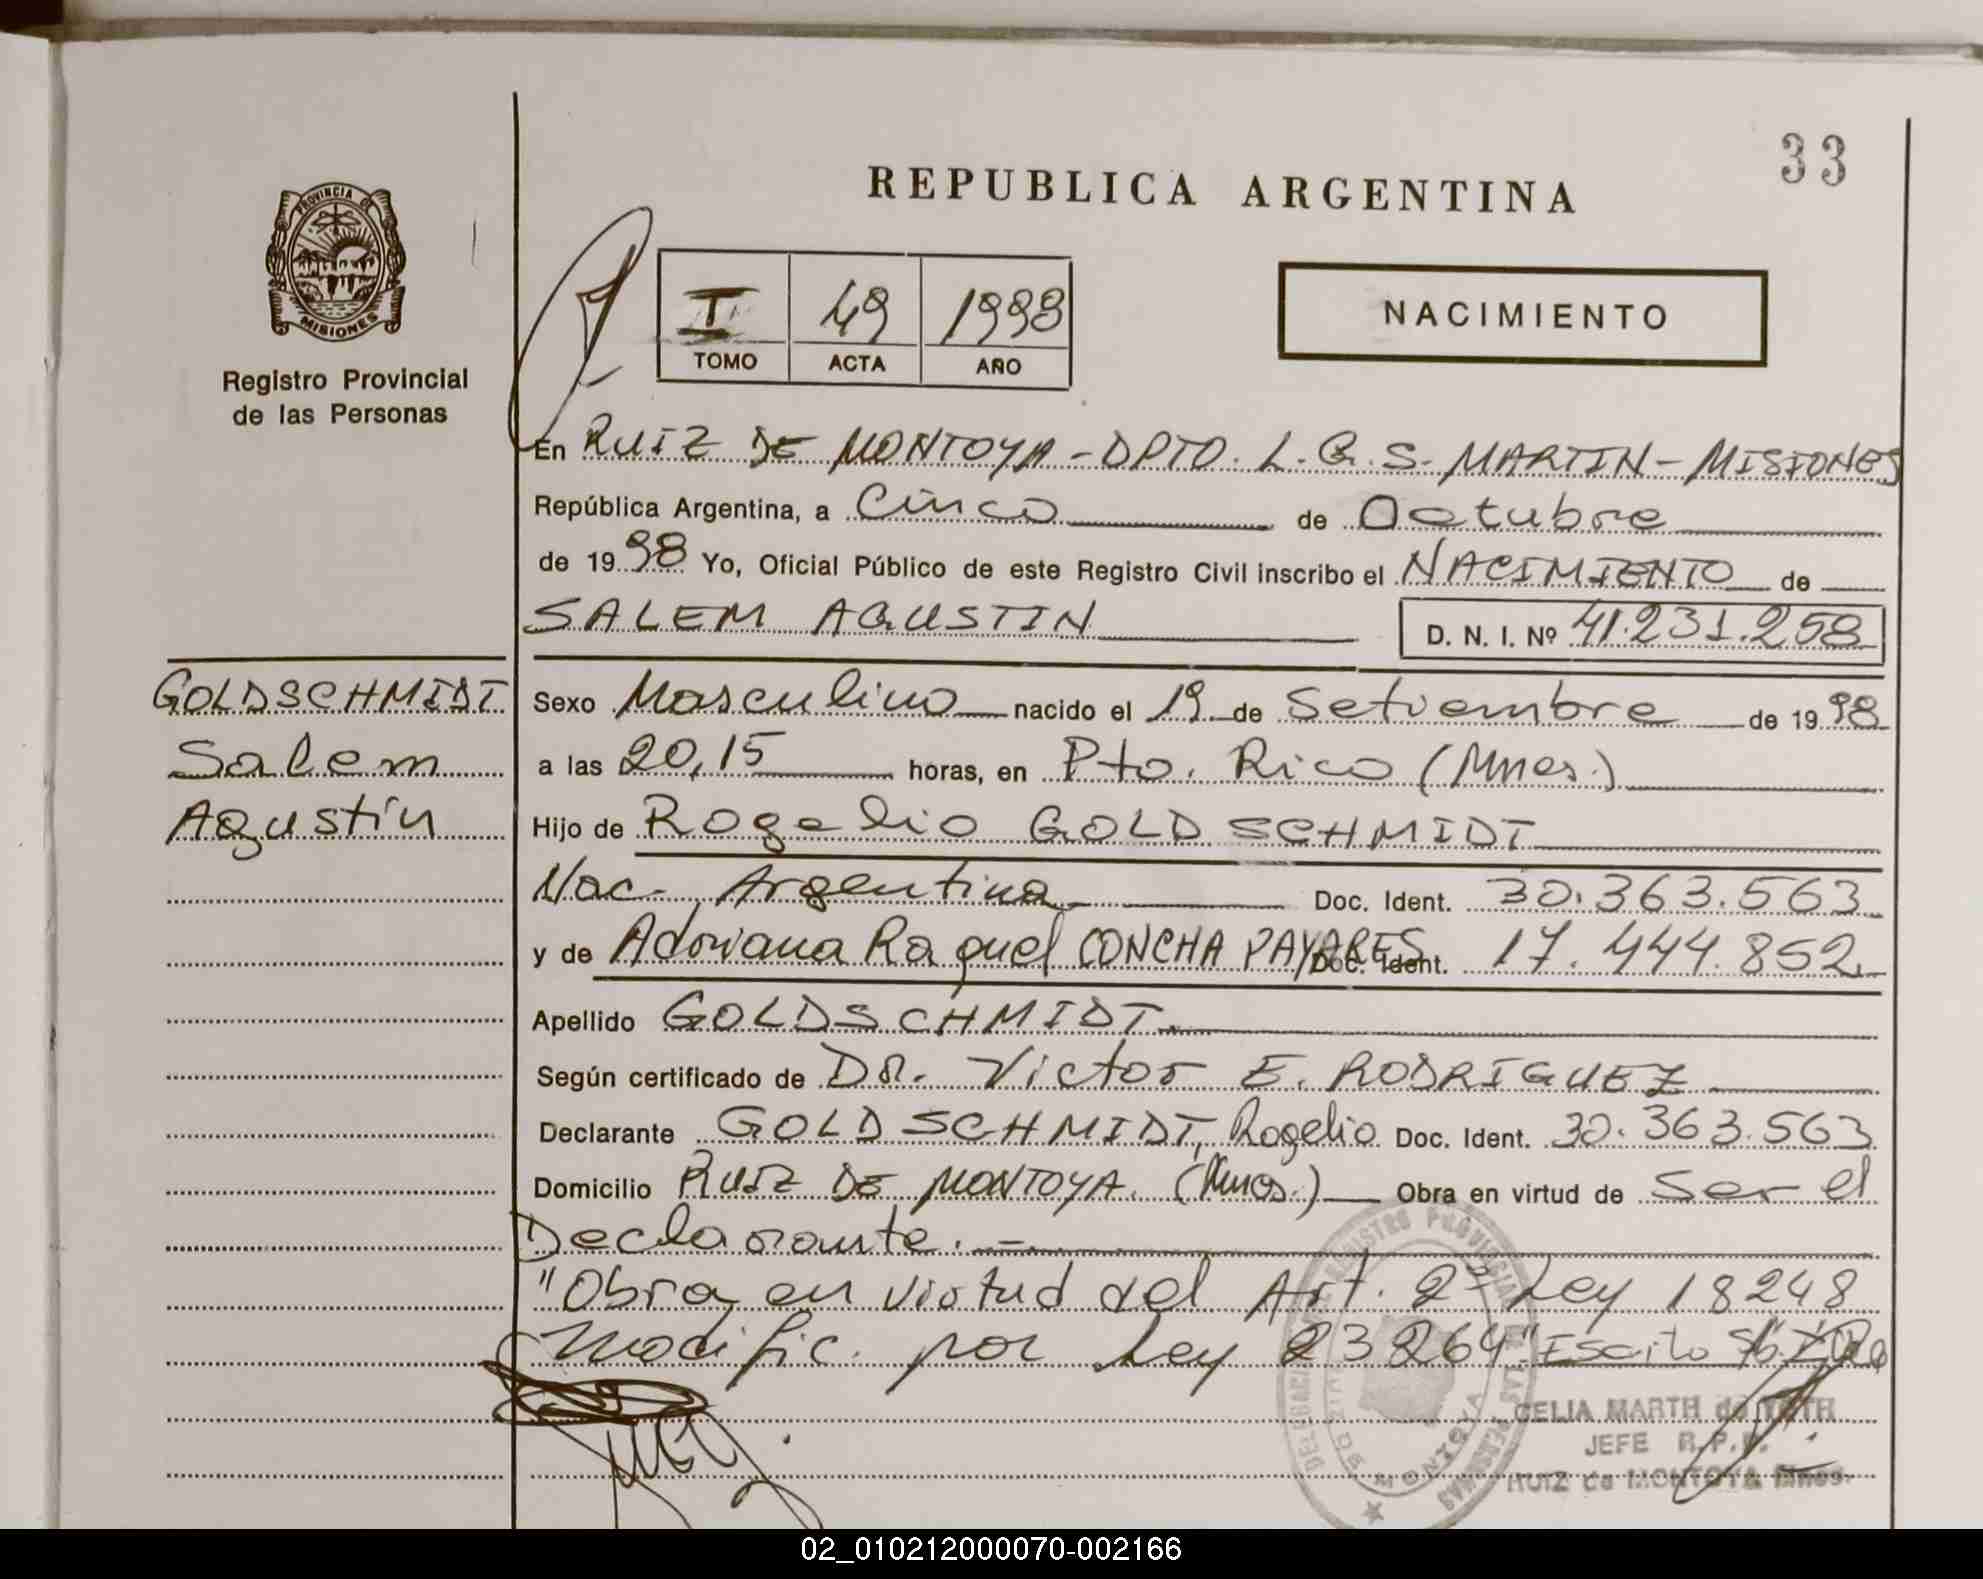 33
REPUBLICA ARGENTINA
PROVINCIA DE
MISIONES
Registro Provincial
de las Personas
I 49 1998
TOMO ACTA AÑO
NACIMIENTO
En RUIZ DE MONTOYA - DPTO. L. G. S. MARTIN - MISIONES
República Argentina, a Cinco de Octubre
de 19 98 Yo, Oficial Público de este Registro Civil inscribo el NACIMIENTO de
SALEM AGUSTIN D. N. I. Nº 41.231.258
GOLDSCHMIDT
Salem
Agustín
Sexo Masculino nacido el 19 de Setiembre de 19 98
a las 20,15 horas, en Pto. Rico (Mnes.)
Hijo de Rogelio GOLDSCHMIDT
Nac. Argentina Doc. Ident. 30.363.563
y de Adriana Raquel CONCHA PAYARES Doc. Ident. 17.444.852
Apellido GOLDSCHMIDT
Según certificado de DR. Victor E. RODRIGUEZ
Declarante GOLDSCHMIDT, Rogelio Doc. Ident. 30.363.563
Domicilio RUIZ DE MONTOYA (Mnes.) Obra en virtud de Ser el
Declarante.
"Obra en virtud del Art. 2º Ley 18248
modific. por Ley 23264" Escrito
CELIA MARTH de
JEFE R.P.P.
RUIZ de MONTOYA Mnes.
02_010212000070-002166